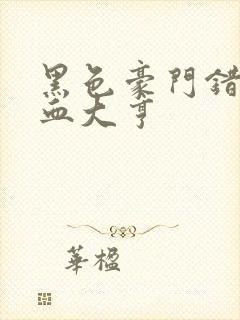 黑色豪門錯
血大亨
華楹